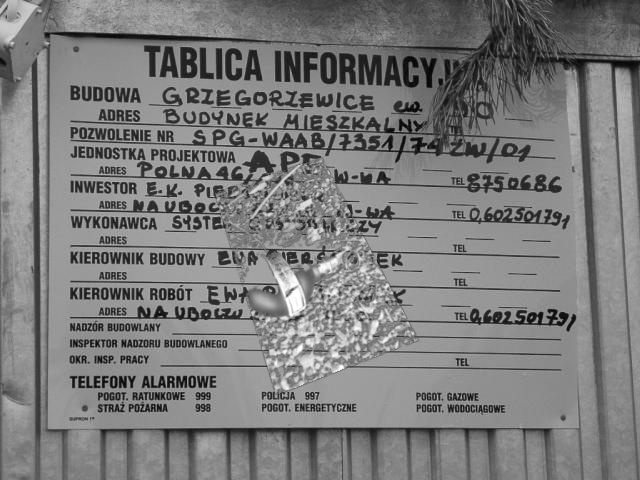 TABLICA INFORMACYJNA
BUDOWA GRZEGORZEWICE ew.
ADRES BUDYNEK MIESZKALNY
POZWOLENIE NR SPG-WAAB/7351/74 ZW/01
JEDNOSTKA PROJEKTOWA
ADRES POLNA 46 W-WA TEL 8750686
INWESTOR E.K.
ADRES NA UBOCZU W-WA TEL 0,602501791
WYKONAWCA
ADRES TEL
KIEROWNIK BUDOWY EWA
ADRES TEL
KIEROWNIK ROBÓT EWA
ADRES NA UBOCZU TEL 0,602501791
NADZÓR BUDOWLANY
INSPEKTOR NADZORU BUDOWLANEGO
OKR. INSP. PRACY TEL
TELEFONY ALARMOWE
POGOT. RATUNKOWE 999 POLICJA 997 POGOT. GAZOWE
STRAŻ POŻARNA 998 POGOT. ENERGETYCZNE POGOT. WODOCIĄGOWE